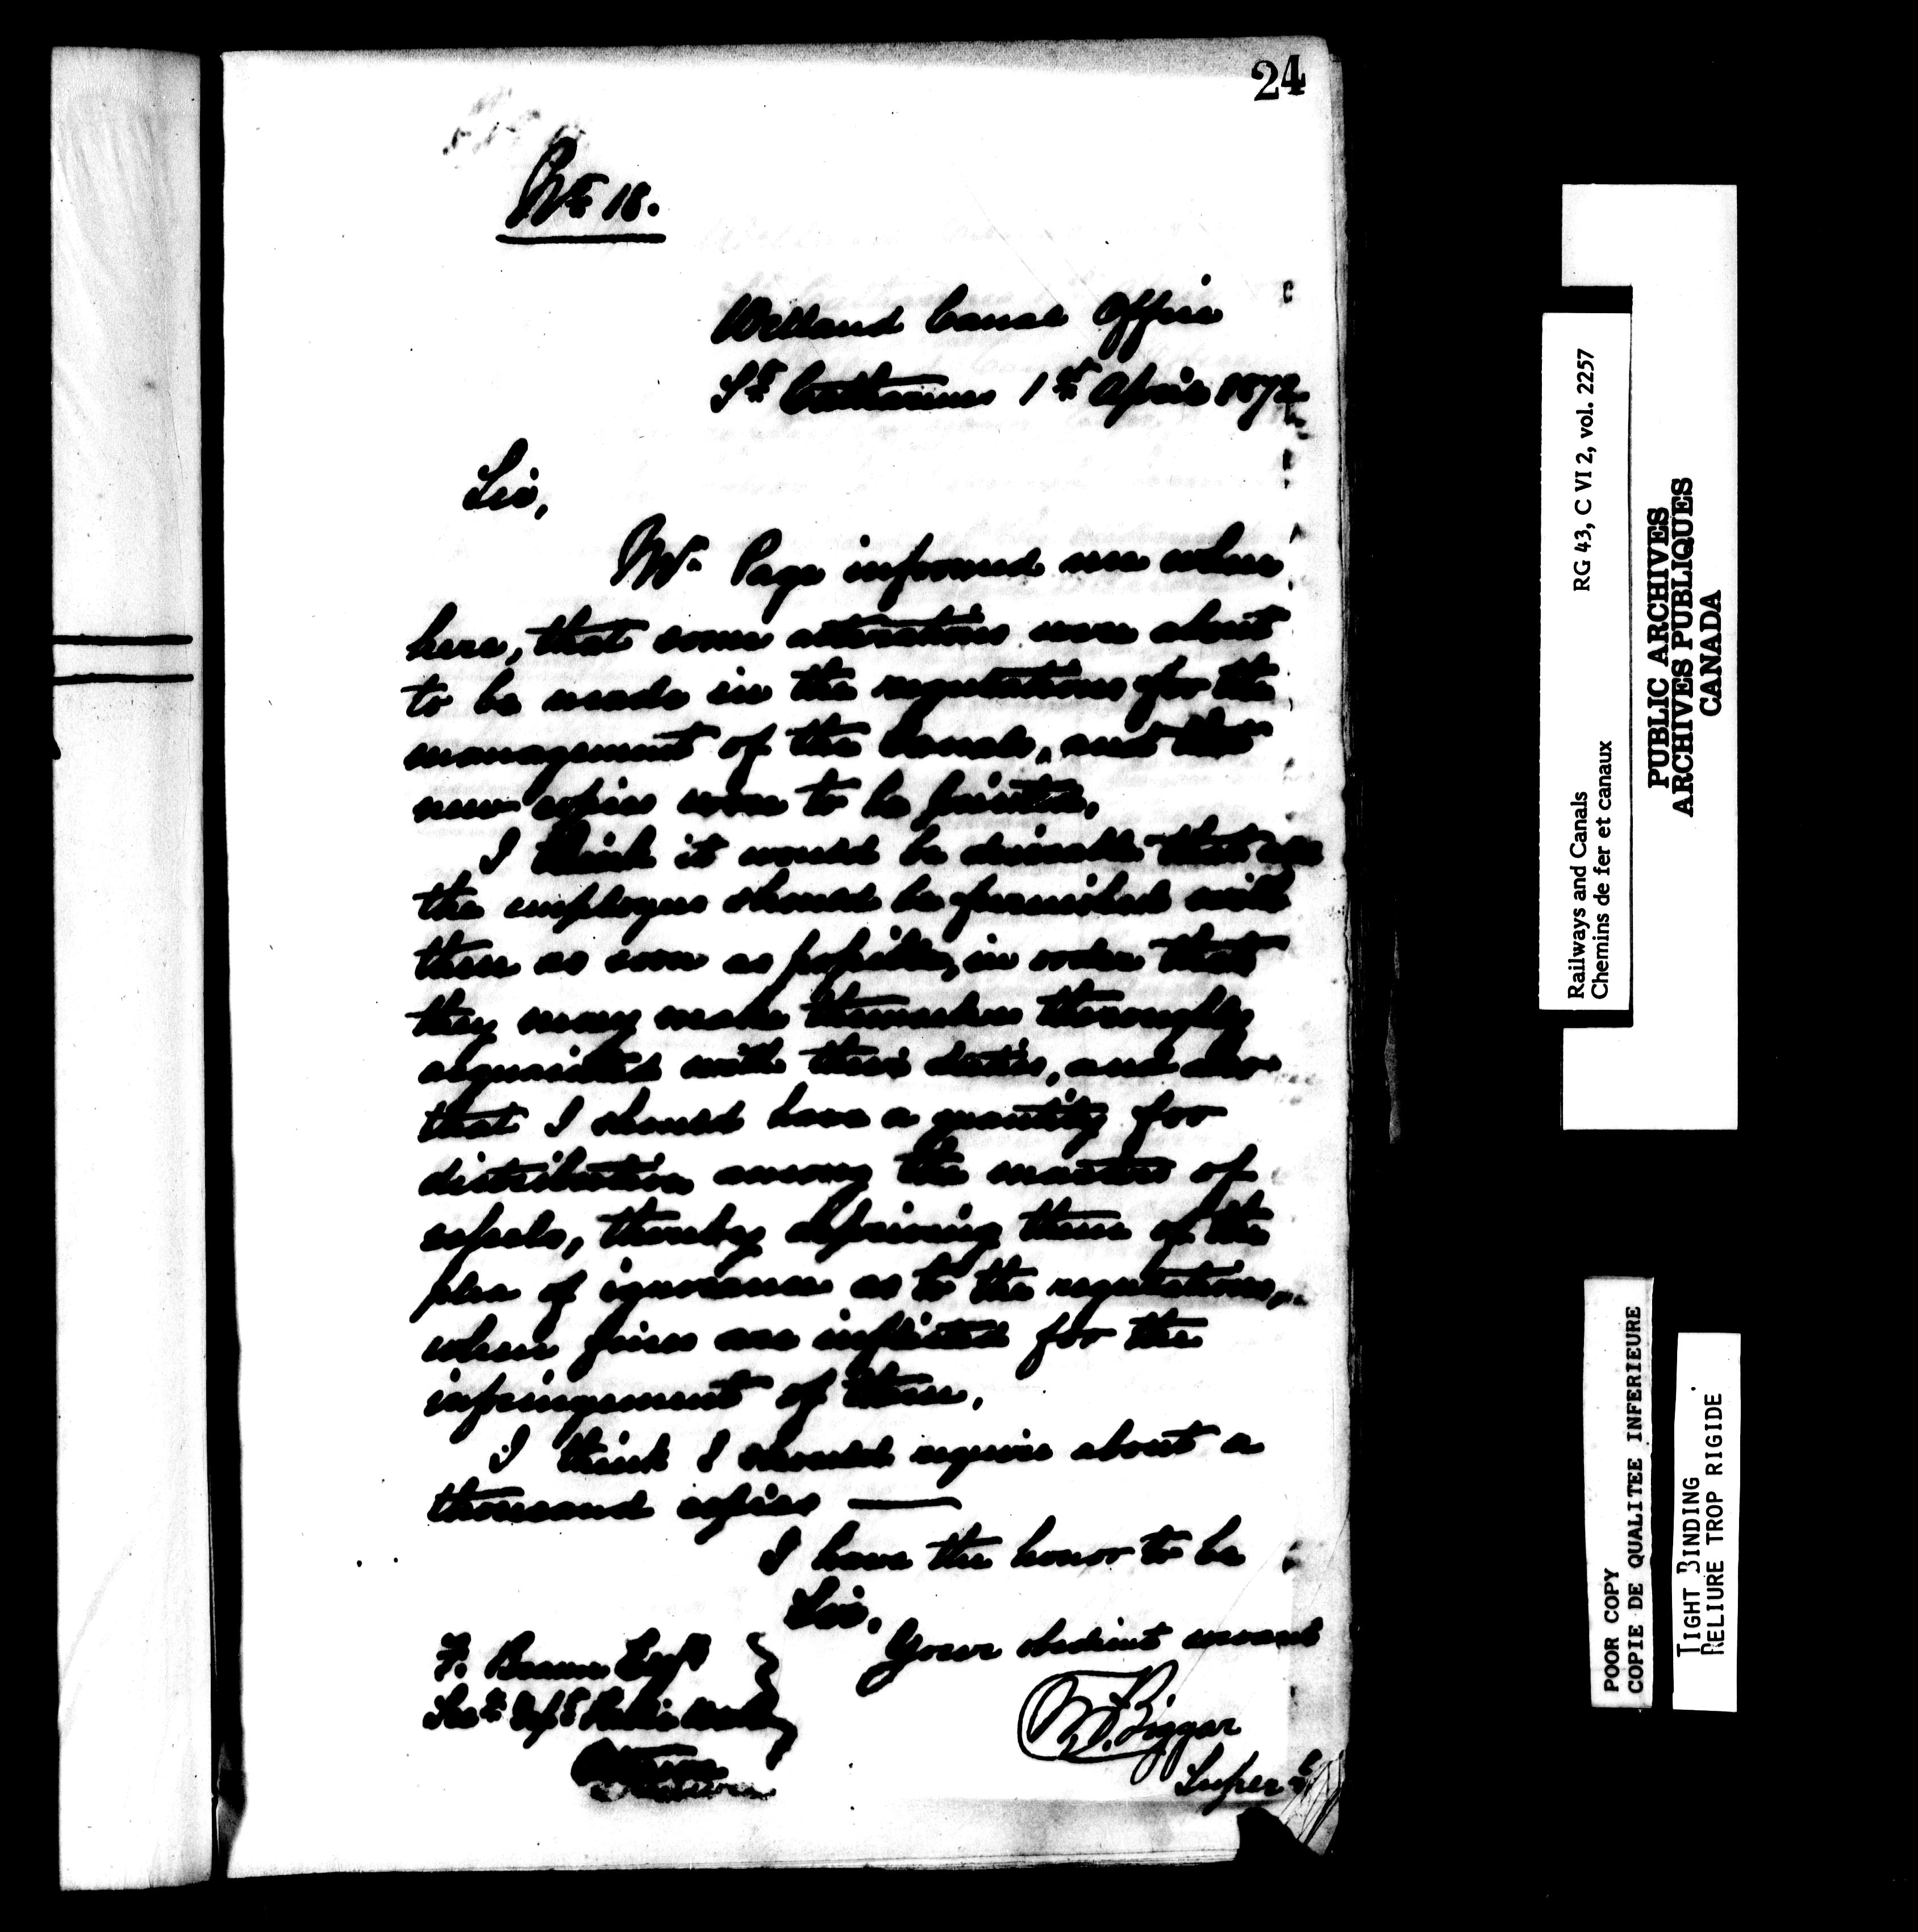 24
No 18.
Welland Canal Office
St Catharines 1st April 1872
Sir,
Mr. Page informed me when
here, that some alterations were about
to be made in the regulations for the
management of the Canals, and that
new copies were to be printed.
I think it would be desirable that all
the employees should be furnished with
them as soon as possible, in order that
they may make themselves thoroughly
acquainted with their duties, and also
that I should have a quantity for
distribution among the masters of
vessels, thereby depriving them of the
plea of ignorance as to the regulations,
when fines are inflicted for the
infringement of them.
I think I should require about a
thousand copies
I have the honor to be
Sir,
Your obedient servant
F. Braun Esqr
Secy Dept Public Works
Ottawa
Biggar
Supert
Railways and Canals RG 43, C VI 2, vol. 2257
Chemins de fer et canaux
PUBLIC ARCHIVES
ARCHIVES PUBLIQUES
CANADA
POOR COPY
COPIE DE QUALITEE INFERIEURE
TIGHT BINDING
RELIURE TROP RIGIDE